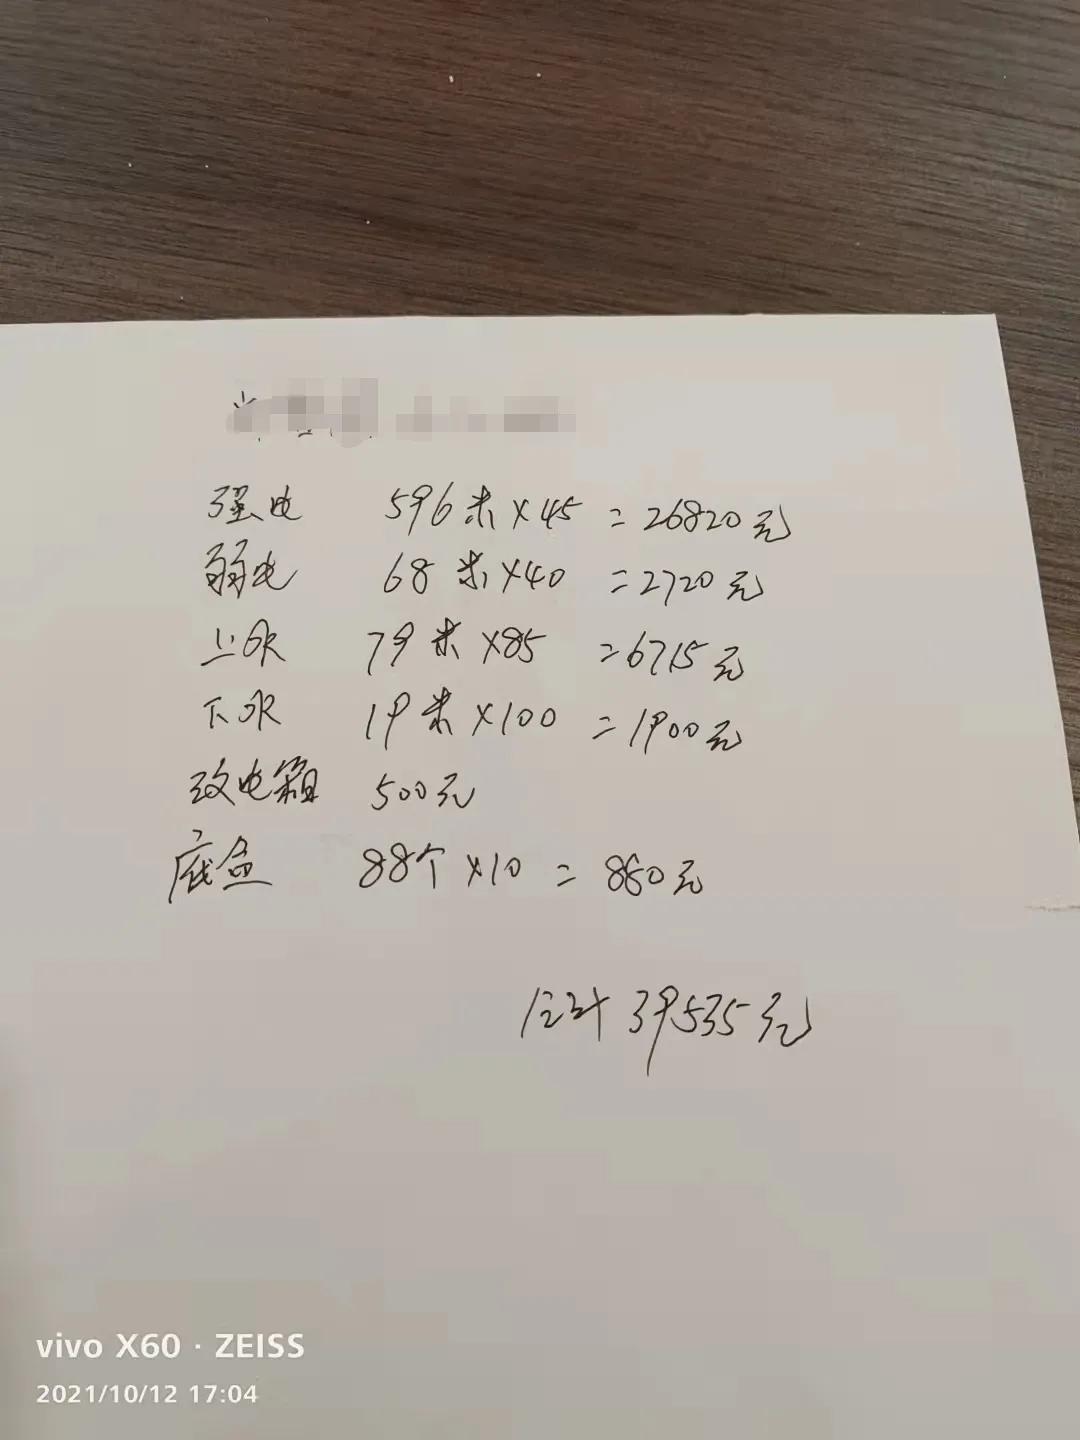 强电 596米×45 =26820元
弱电 68米×40 =2720元
上水 79米×85 =6715元
下水 19米×100 =1900元
改电箱 500元
底盒 88个×10 = 880元
合计 39535元
vivo X60 · ZEISS
2021/10/12 17:04